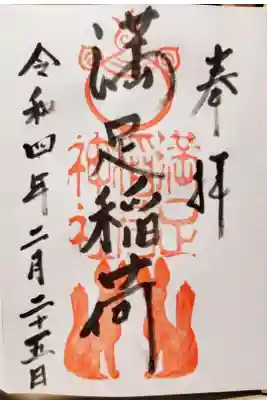 奉拝
満足稲荷
満足稲荷神社
令和四年二月二十五日